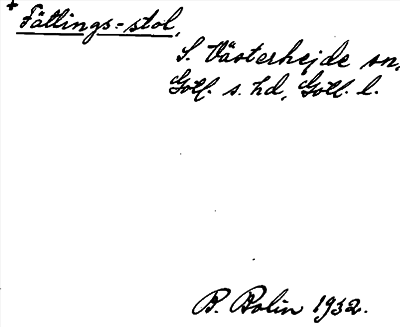 + Fätlings-stol,
S. Västerhejde sn,
Gotl. s. hd, Gotl. l.
B. Bolin 1932.